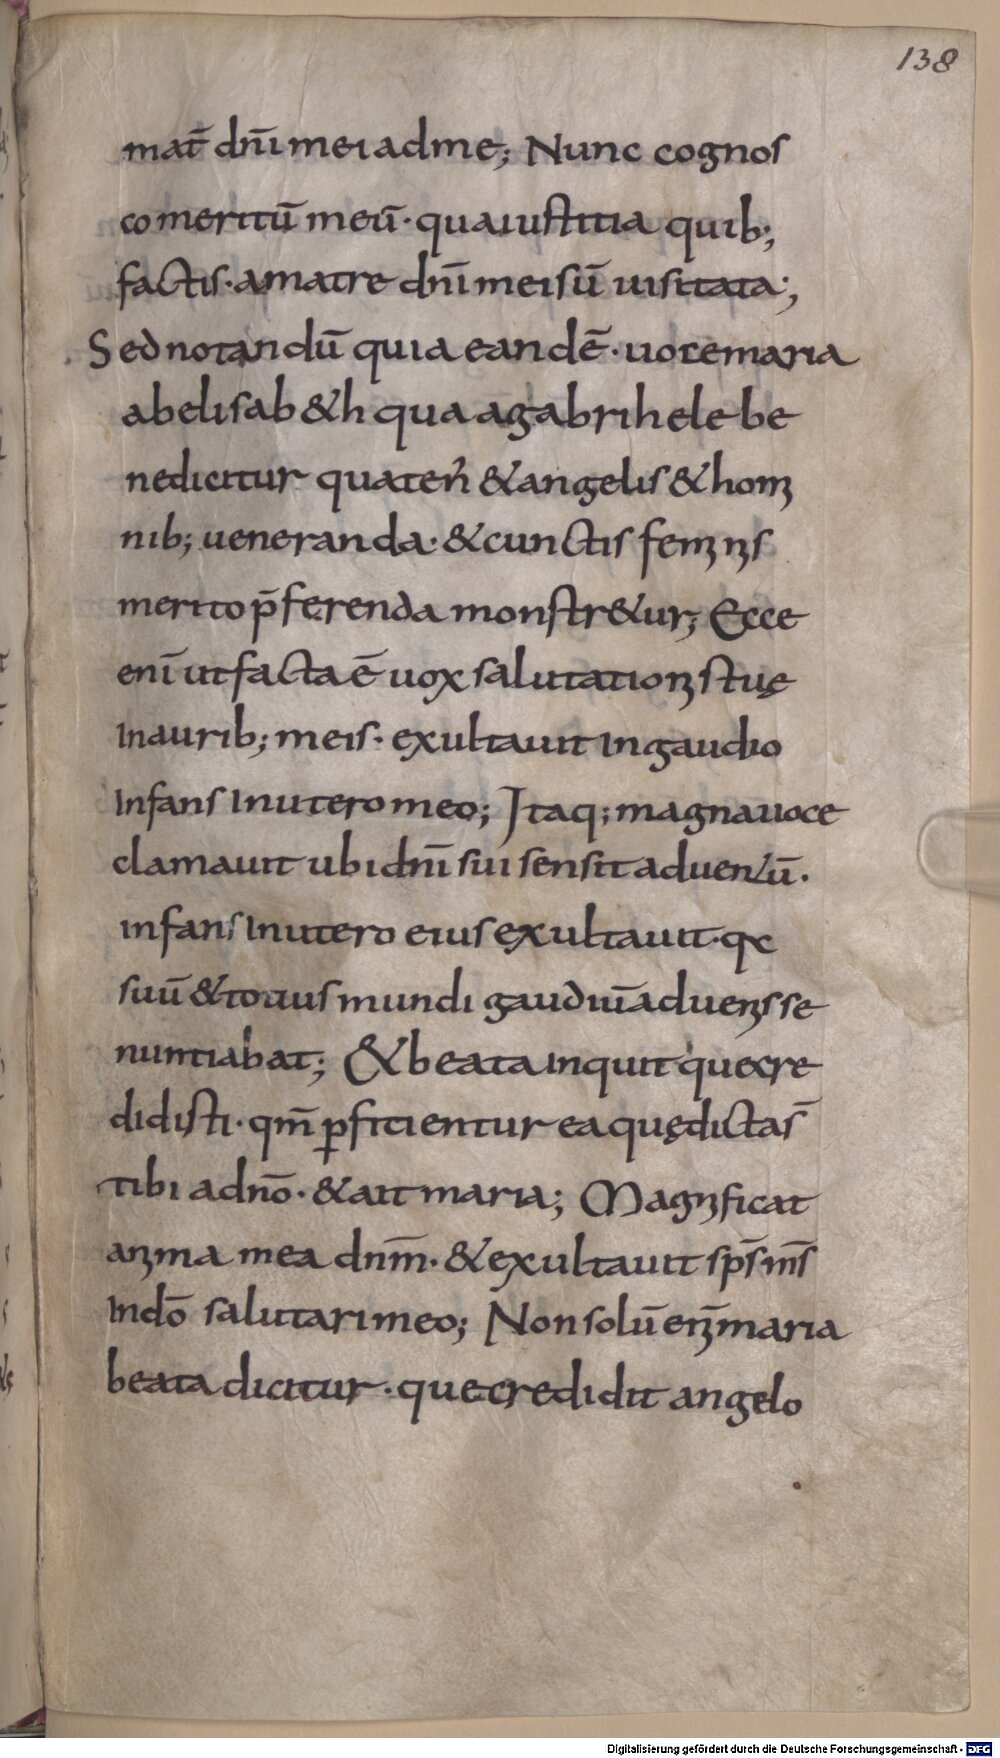 138
mat̄ dn̄i mei ad me; Nunc cognos
co meritū meū· qua iustitia quib;
factis· a matre dn̄i mei sū uisitata;,
Sed notandū quia eandē· uoce maria
ab elisab&h qua a gabrihele be
nedicitur quaten̄ & angelis & homi
nib; ueneranda· & cunctis feminis
merito p̄ferenda monstr&ur; Ecce
eni̅ ut facta ē uox salutationis tuę
in aurib; meis· exultauit in gaudio
infans in utero meo; Itaq; magna uoce
clamauit ubi dn̄i sui sensit aduentū·
infans in utero eius exultauit· q
suū & totius mundi gaudiū aduenisse
nuntiabat; & beata inquit que cre
didisti· qm̄ ꝑficientur ea quę dicta s̄
tibi a dn̄o· & ait maria; Magnificat
anima mea dnm̄· & exultauit sp̄s m̄s
in dō salutari meo; Non solū enim̄ maria
beata dicitur· que credidit angelo
Digitalisierung gefördert durch die Deutsche Forschungsgemeinschaft - DFG